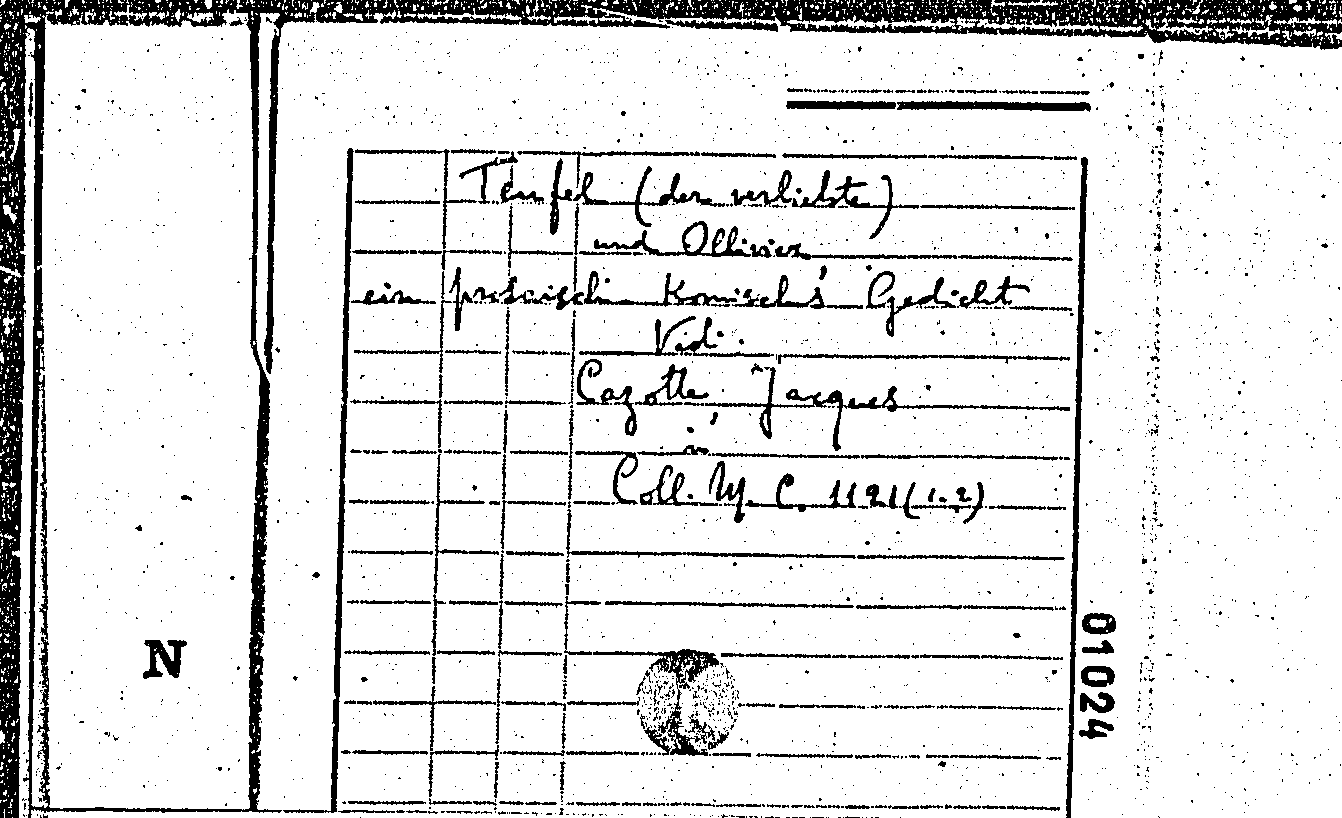 Teufel (der verliebte)
und Ollivier,
ein prosaisch Komisch's Gedicht
Vid.
Cazotte, Jacques
in
Coll. M. C. 1121(1.2)
N
01024